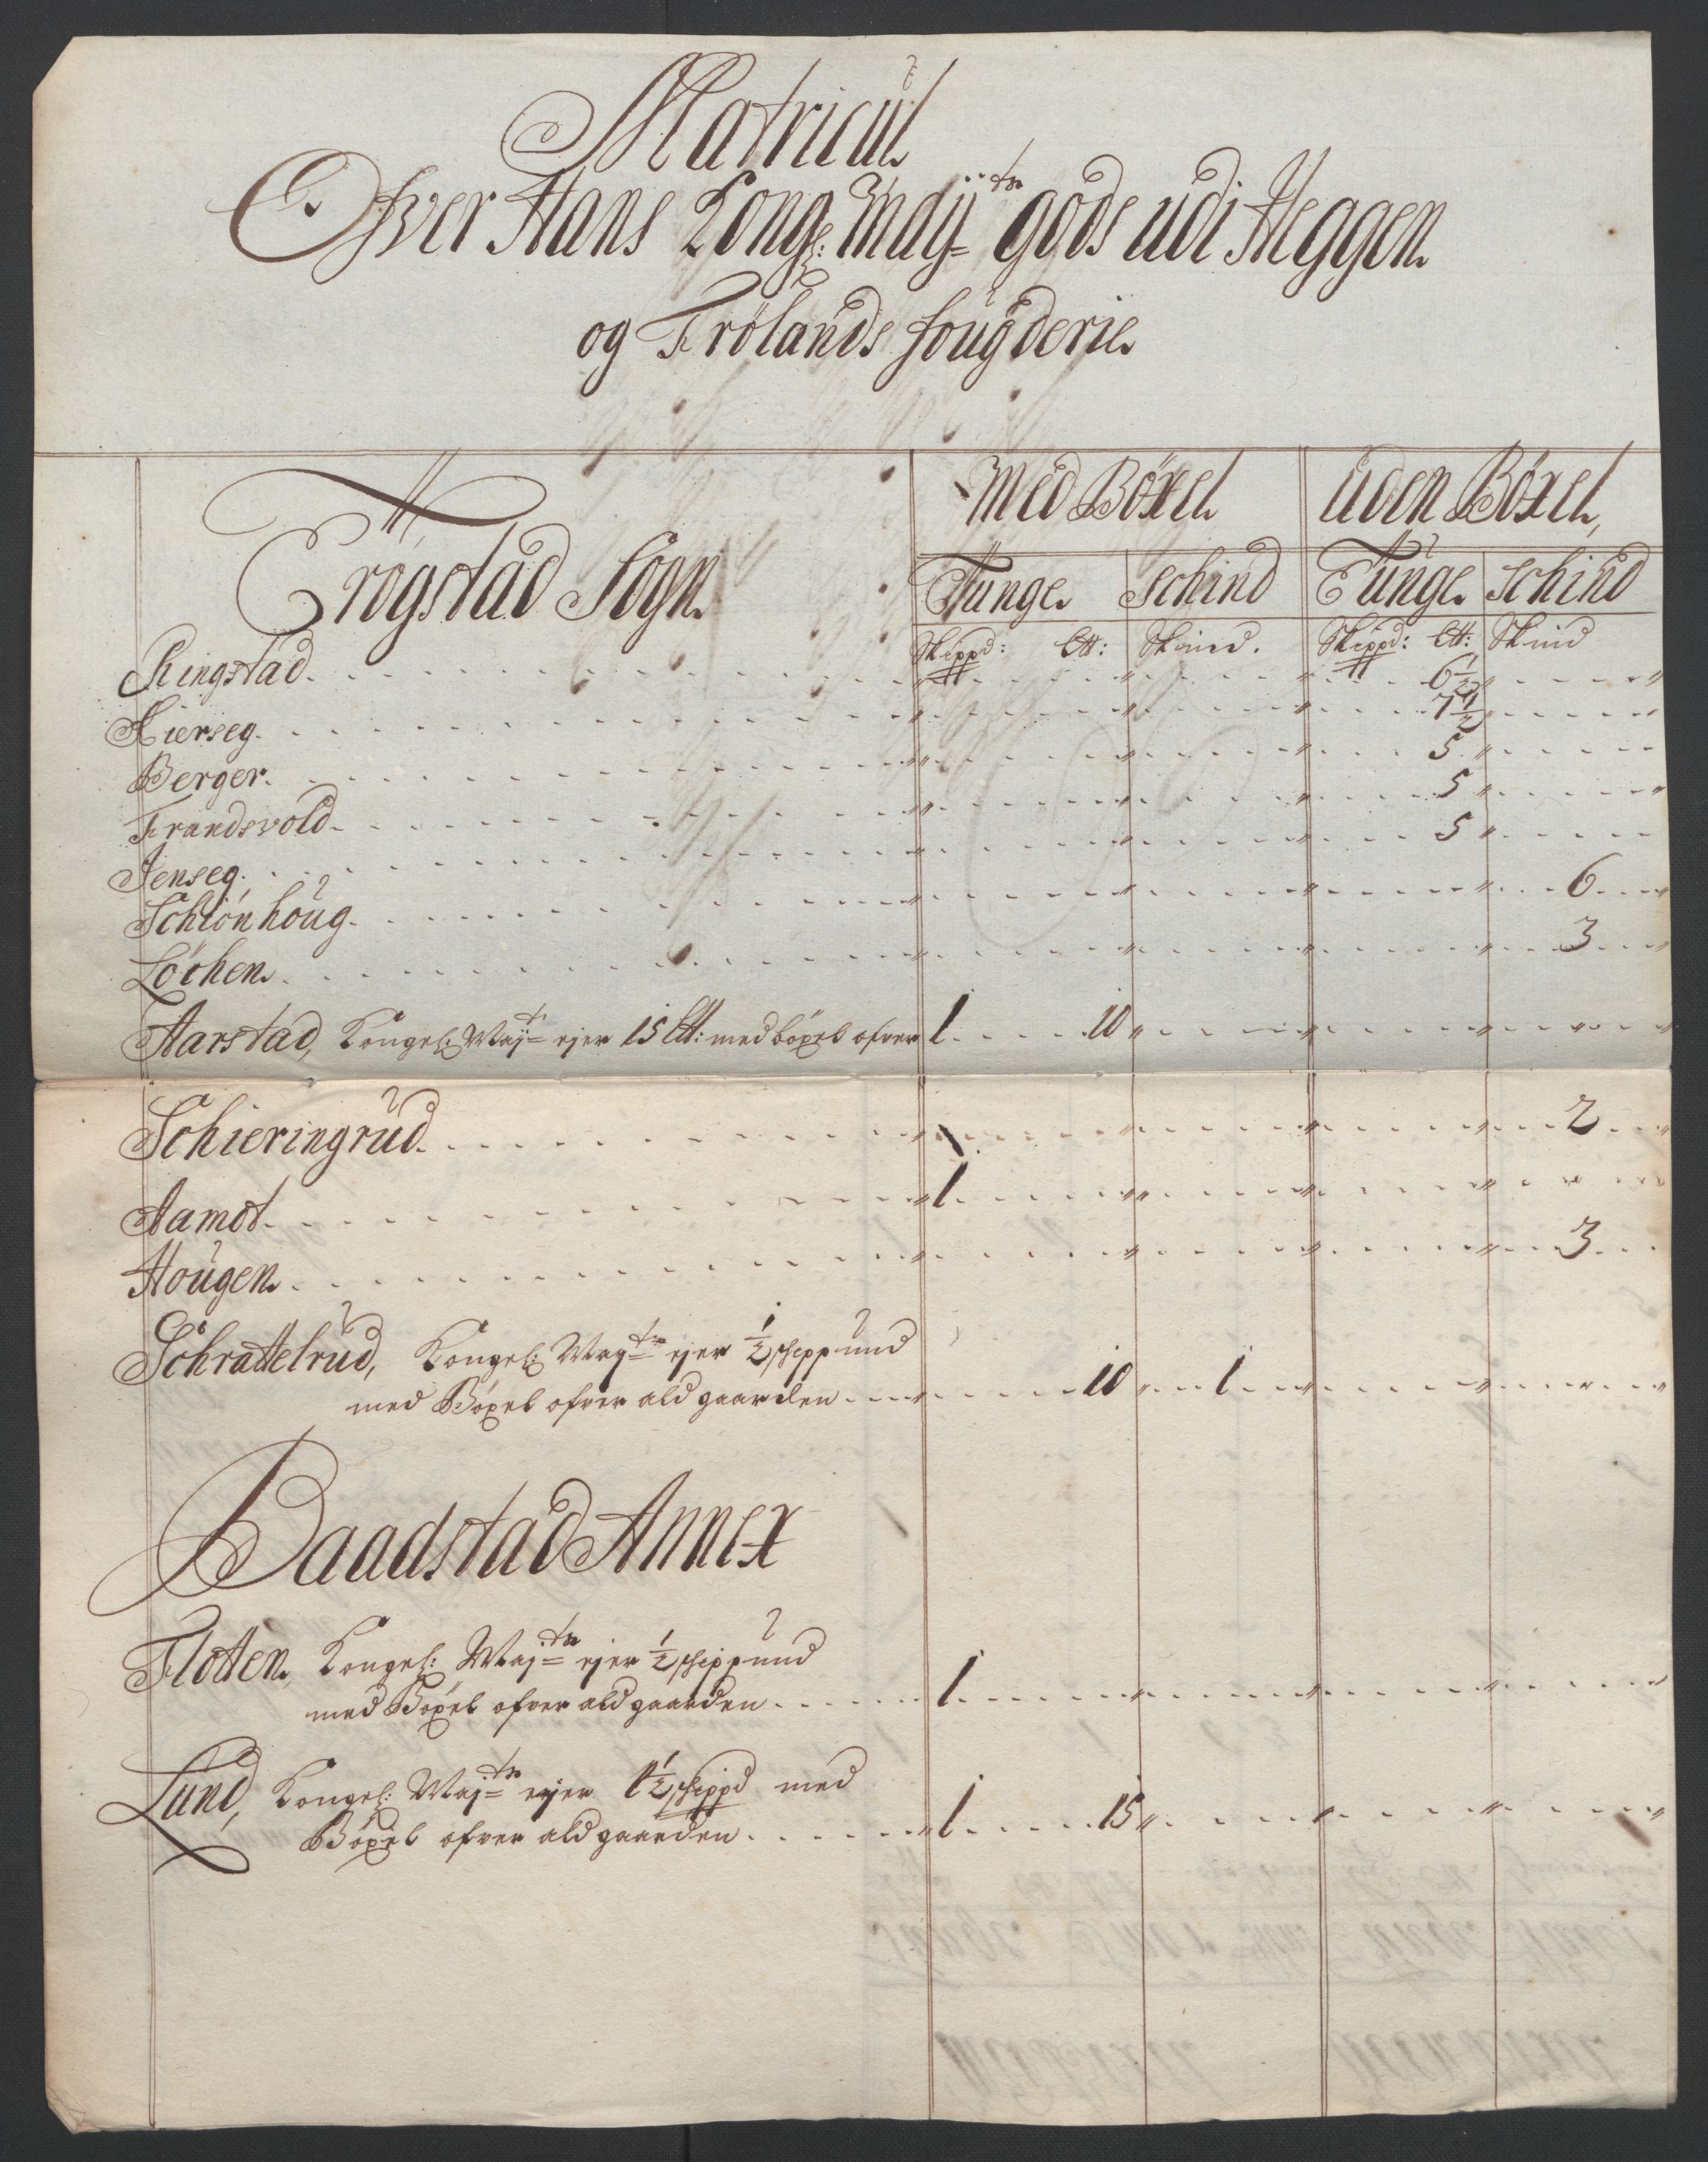 Matricul
Ofver Hans Kongl: Maÿts gods udi Heggen
og Frølands fougderie
Med Böxel uden Böxel,
Trögstad Sogn Tunge Schind Tunge Schind
Skippd: Lt: Skind. Skippd: Lt: Skind
Ringstad 6½
Kierseg 7½
Berger 5
Frandsvold 5
Jenseg 5
Schiönhoug 6
Löchen 3
Aarstad, Kongel: Majts ejer 15 Lt: med böxel ofver 1 10
Schieringrud 1 2
Aamot 1
Hougen 3
Schrattelrud, Kongel: Majts ejer ½ schippund
med Böxel ofver ald gaarden 10 1
Baadstad Annex
Floten, Kongel: Majts ejer ½ schippund
med Böxel ofver ald gaarden 1
Lund, Kongel: Majts ejer 1½ schippd med
Böxel ofver ald gaarden 1 15